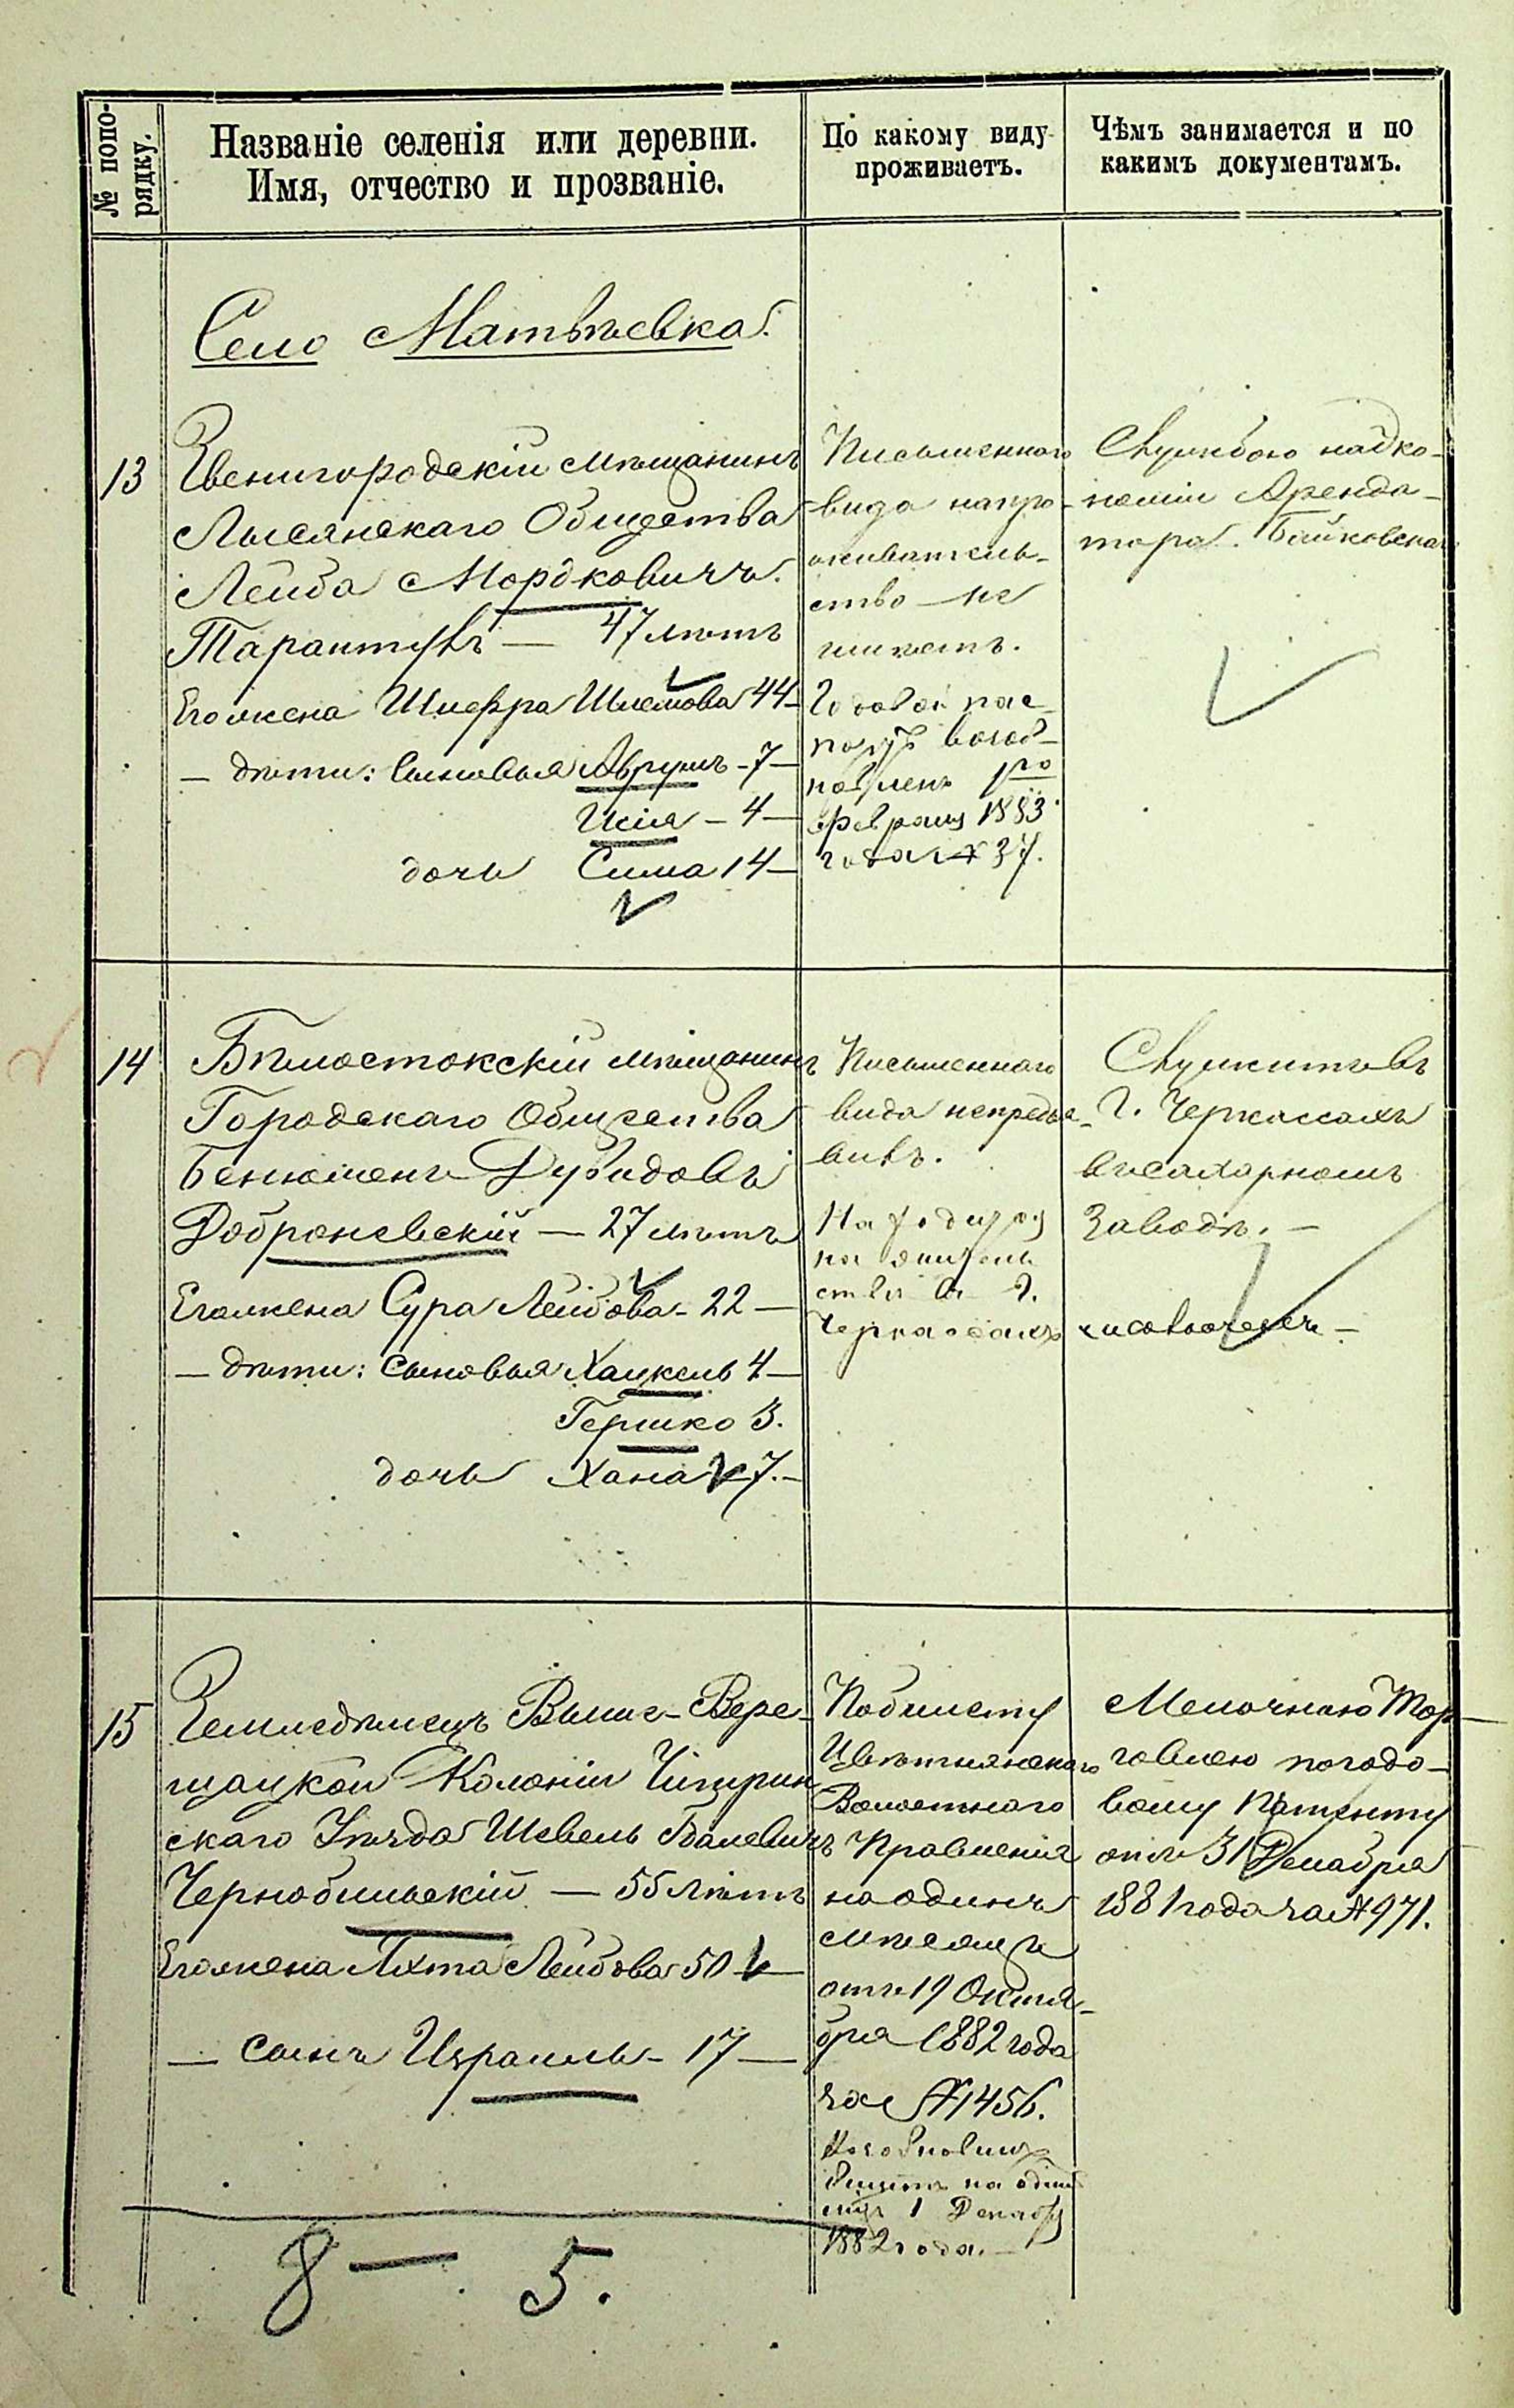 № попо-
рядку.
Названіе селенія или деревни.
Имя, отчество и прозваніе.
По какому виду
проживаетъ.
Чѣмъ занимается и по
какимъ документамъ.
Село Матвѣевка.
13
Звенигородскій мѣщанинъ
Лысянскаго Общества
Лейба Мордковичъ
Тарантулъ — 47 лѣтъ
Его жена Шифра Шлемова 44 —
— дѣти: Сыновья Аврумъ - 7 —
Исія - 4 —
дочь Сима 14 —
Письменнаго
вида на про-
живатель-
ство не
имѣетъ.
Годовой пас-
портъ возоб-
новленъ 1го
февраля 1883
года № 37.
Службою
Аренда-
тора
14
Бѣлостокскій мѣщанинъ
Городскаго Общества
Беньюменъ Дувидовъ
Доброневскій — 27 лѣтъ
Его жена Сура Лейбова - 22 —
— дѣти: сыновья Хацкель 4 —
Гершко 3.
дочь Хана 7. —
Письменнаго
вида не предъя-
вивъ.
Находится
на житель
ствѣ въ г.
Черкассахъ
Служитъ въ
г. Черкассахъ
въ сахарномъ
заводѣ. —
15
Земледѣлецъ Выше - Вере-
щацкой Колоніи Чигирин
скаго Уѣзда Шевель
Чернобыльскій — 55 лѣтъ
Его жена Лейбова 50 —
— сынъ Израиль - 17 —
По билету
Цвѣтнянскаго
Волостнаго
Правленія
на одинъ
мѣсяцъ
отъ 19 Октя-
бря 1882 года
за № 1456.
Возобновилъ
билетъ на одинъ
мцъ 1 Декабря
1882 года. —
Мелочною Тор-
говлею по годо-
вому патенту
отъ 31 Декабря
1881 года за № 971.
8 — 5.